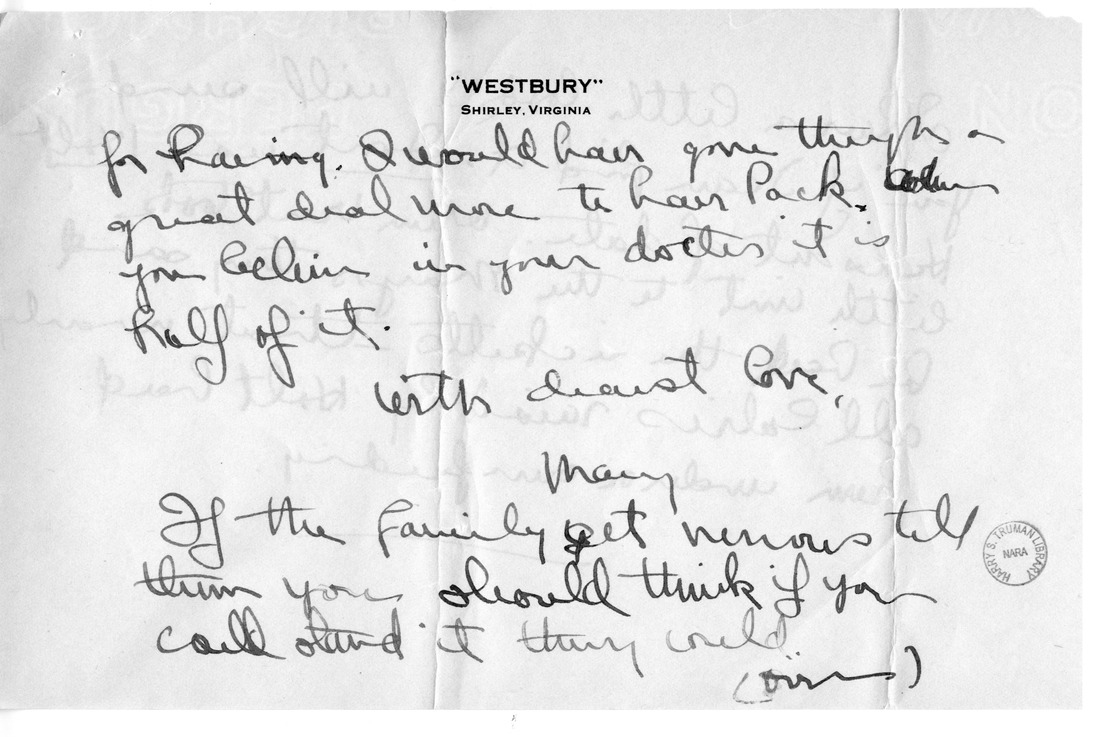 "WESTBURY"
SHIRLEY, VIRGINIA
for having. I would have gone through a
great deal more to have Pack.
you believe in your doctor it is
half of it.
With dearest love,
Mary
If the family get nervous tell
them you should think if you
could stand it they could
(over)
HARRY S. TRUMAN LIBRARY
NARA